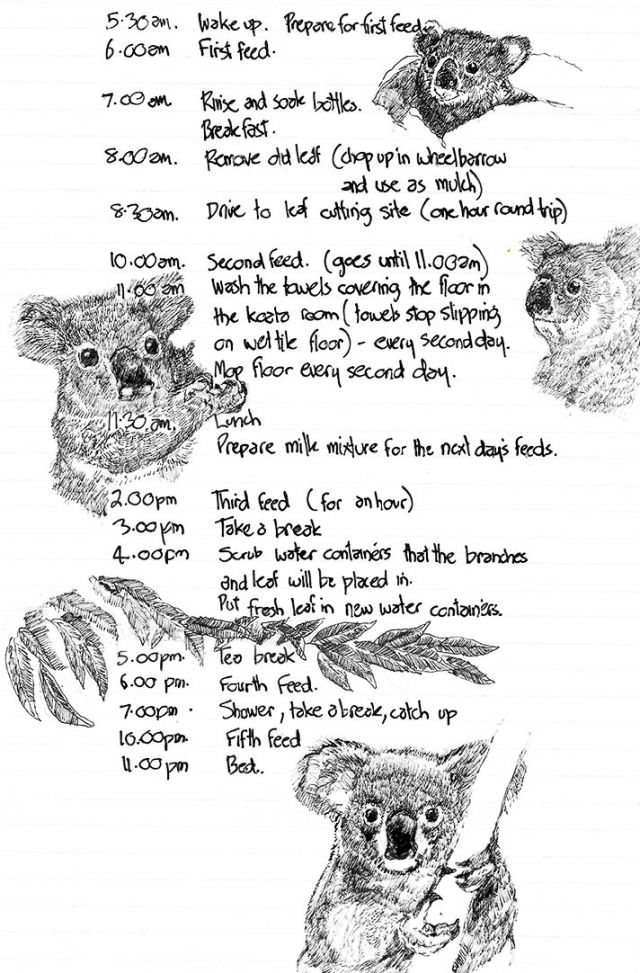 5.30am. Wake up. Prepare for first feed.
6.00am First feed.
7.00am. Rinse and soak bottles.
Breakfast.
8.00am. Remove old leaf (chop up in wheelbarrow
and use as mulch)
8.30am. Drive to leaf cutting site (one hour round trip)
10.00am. Second feed. (goes until 11.00am)
11.00am Wash the towels covering the floor in
the koala room (towels stop slipping
on wet tile floor) - every second day.
Mop floor every second day.
11.30am. Lunch
Prepare milk mixture for the next day's feeds.
2.00pm Third feed (for an hour)
3.00pm Take a break
4.00pm Scrub water containers that the branches
and leaf will be placed in.
Put fresh leaf in new water containers.
5.00pm. Tea break
6.00 pm. Fourth Feed.
7.00pm. Shower, take a break, catch up
10.00pm. Fifth feed
11.00pm Bed.